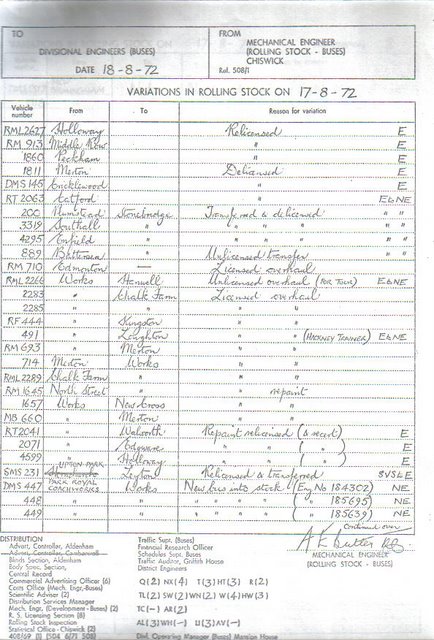 TO
FROM
DIVISIONAL ENGINEERS (BUSES)
MECHANICAL ENGINEER
(ROLLING STOCK - BUSES)
CHISWICK
DATE 18-8-72
Ref. 508/1
VARIATIONS IN ROLLING STOCK ON 17-8-72
Vehicle number From To Reason for variation
RML2627 Holloway Relicensed E
RM 913 Middle Row " E
1860 Peckham " E
1811 Merton Delicensed E
DMS 145 Cricklewood " E
RT 2063 Catford " E&NE
200 Plumstead Stonebridge Transferred & delicensed " "
3319 Southall " " " " " "
4295 Enfield " " " " " "
889 Battersea " Unlicensed transfer " "
RM 710 Edmonton — Licensed overhaul
RML 2266 Works Stamwell Unlicensed overhaul (FOR TOUR) E&NE
2283 " Chalk Farm Licensed overhaul
2285 " " " "
RF 444 " Kingston " "
491 " Loughton " " (HACKNEY TRAINER) E&NE
RM 693 " Merton " "
714 Merton Works " "
RML 2289 Chalk Farm " " "
RM 1645 North Street " " repaint
1657 Works New Cross " "
MB 660 " Merton " "
RT2041 " Walworth Repaint relicensed (& recert) E
2071 " Edgware " " ( " ) E
4599 " Holloway " " ( " ) E
SMS 231 UPTON PARK Leyton Relicensed & transferred SVSLE
DMS 447 PARK ROYAL COACHWORKS Works New bus into stock (Eng No 184302) NE
448 " " " " " " ( " 185695) NE
449 " " " " " " ( " 185639) NE
continued over
DISTRIBUTION
Advert. Controller, Aldenham
Advert. Controller, Camberwell
Blinds Section, Aldenham
Body Supt. Section,
Central Record
Commercial Advertising Officer (6)
Costs Office (Mech. Engr. Buses)
Scientific Adviser (2)
Distribution Services Manager
Mech. Engr. (Development - Buses) (2)
R. S. Licensing Section (8)
Rolling Stock Inspection
Statistical Office - Chiswick (2)
Traffic Supt. (Buses)
Financial Research Officer
Schedules Supt. Buses
Traffic Auditor, Griffith House
District Engineers
MECHANICAL ENGINEER
(ROLLING STOCK - BUSES)
Q(2) NX(4) T(3) HT(3) R(2)
TL(2) SW(2) WN(2) W(4) HW(3)
TC(-) AR(2)
AL(3) WH(-) U(3) AV(-)
Divl. Operating Manager (Buses) Mansion House